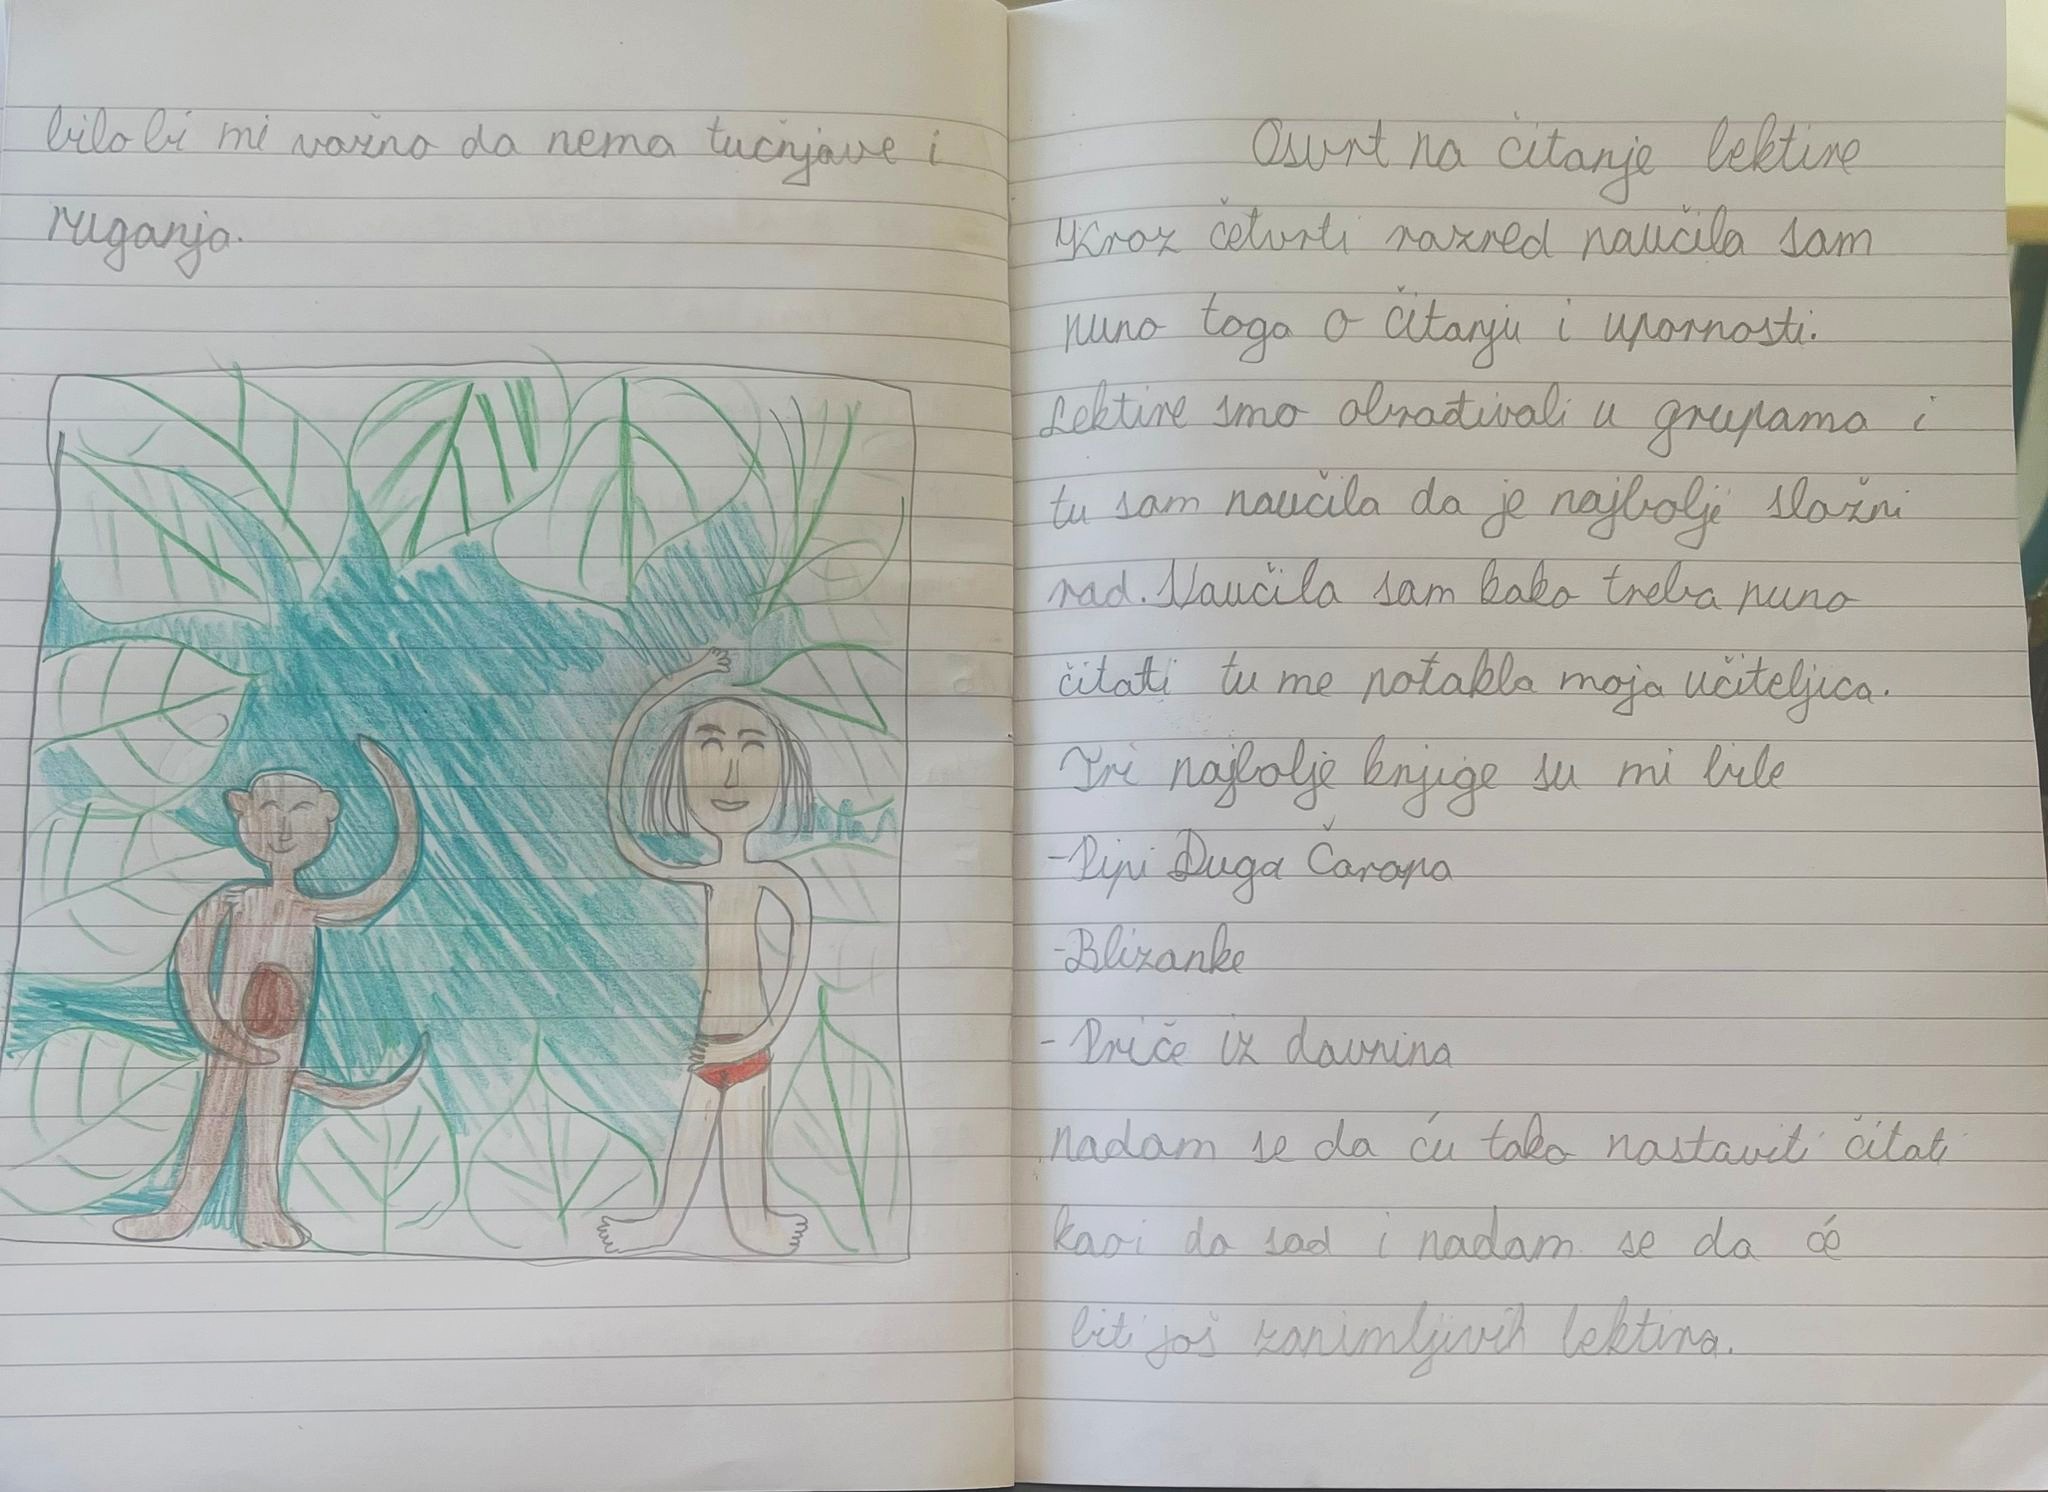 bilo bi mi važno da nema tučnjave i
ruganja.
Osvrt na čitanje lektire
Kroz četvrti razred naučila sam
puno toga o čitanju i upornosti.
Lektire smo obrađivali u grupama i
tu sam naučila da je najbolje složni
rad. Naučila sam kako treba puno
čitati tu me potakla moja učiteljica.
Tri najbolje knjige su mi bile
-Pipi Duga Čarapa
-Blizanke
- Priče iz davnina
nadam se da ću tako nastaviti čitati
kaoi do sad i nadam se da će
biti još zanimljivih lektira.